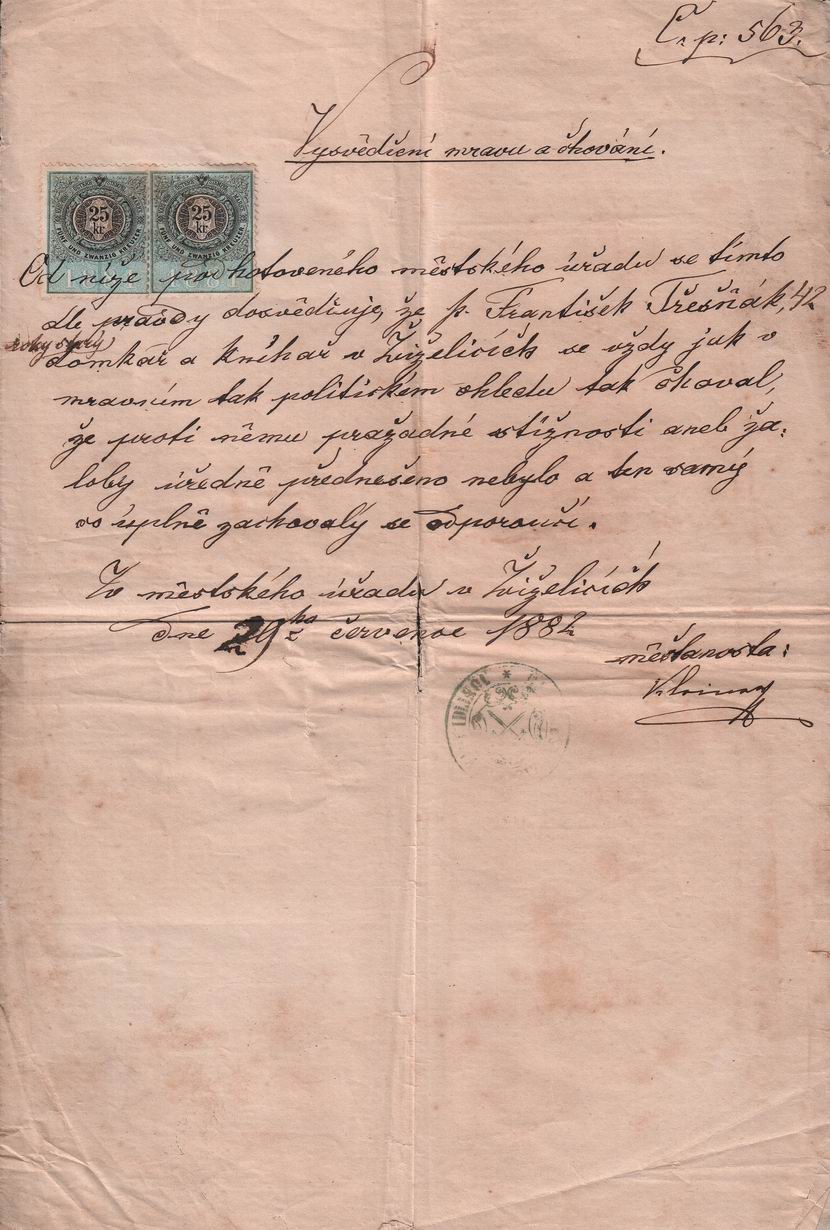 Č. p: 563.
Vysvědčení mravů a chování.
25 kr
FÜNF UND ZWANZIG KREUZER
25 kr
FÜNF UND ZWANZIG KREUZER
Od níže podhotoveného městského úřadu se tímto
dle pravdy dosvědčuje, že p. František Třešňák, 42
roky starý
domkář a knihař v Žiželicích se vždy jak v
mravním tak politickém ohledu tak choval,
že proti němu pražádné stížnosti aneb ža:
loby úředně přednešeno nebylo a ten samý
co úplně zachovalý se odporoučí.
Z městského úřadu v Žiželicích
dne 29ho července 1882
měšťanosta: